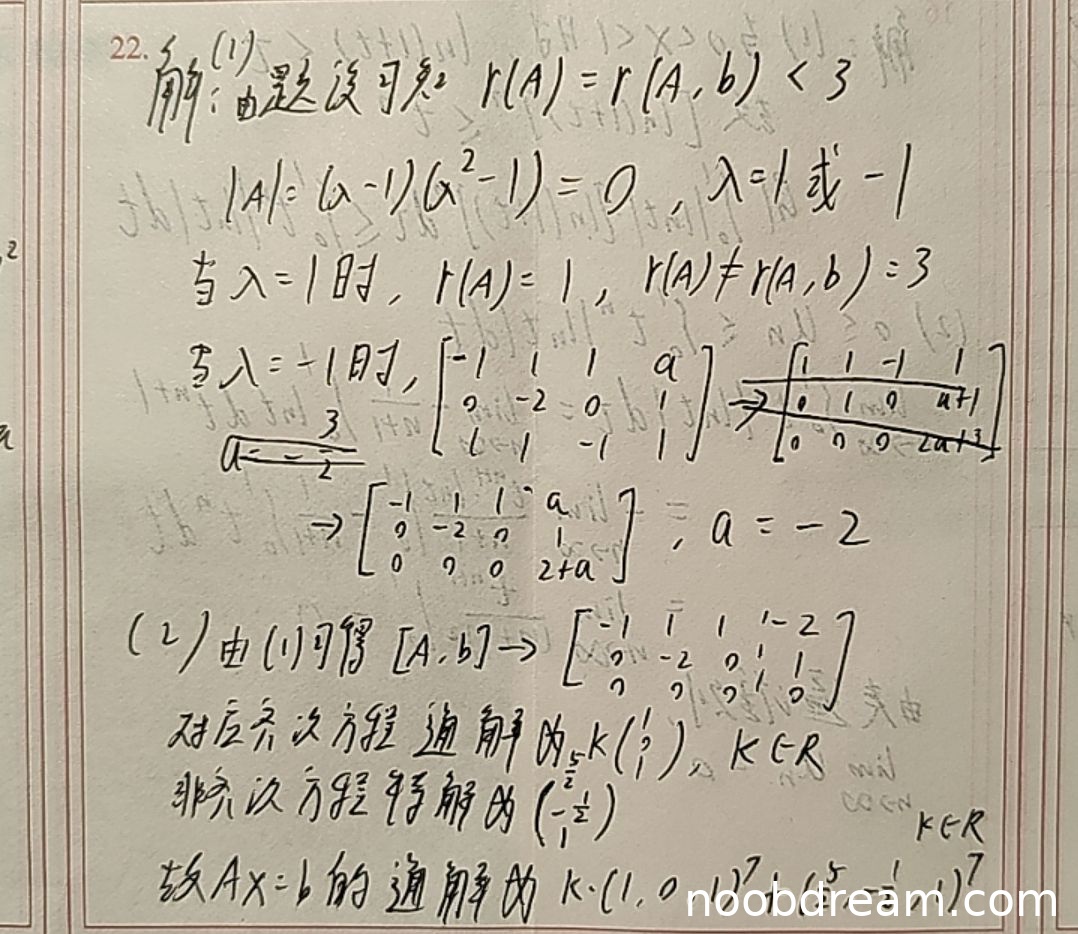 22. 解:(1)由题设可知 r(A)=r(A,b)<3
|A|=(λ-1)(λ²-1)=0, λ=1或-1
当λ=1时, r(A)=1, r(A)≠r(A,b)=3
当λ=-1时, [-1 1 1 a
0 -2 0 1
1 1 -1 1] → [1 1 -1 1
0 1 0 a+1
0 0 0 2a+3]
a=-3/2
→ [-1 1 1 a
0 -2 0 1
0 0 0 2+a], a=-2
(2)由(1)可得 [A,b]→ [-1 1 1 -2
0 -2 0 1
0 0 0 0]
对应齐次方程通解为 k(1 0 1), k∈R
非齐次方程特解为 (5/2 -1/2 1)
k∈R
故Ax=b的通解为 k·(1,0,1)ᵀ+(5/2,-1/2,1)ᵀ
noobdream.com